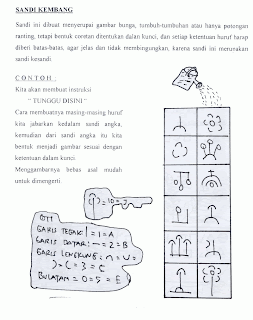 SANDI KEMBANG
Sandi ini dibuat menyerupai gambar bunga, tumbuh-tumbuhan atau hanya potongan
ranting, tetapi bentuk coretan ditentukan dalam kunci, dan setiap ketentuan huruf harap
diberi batas-batas, agar jelas dan tidak membingungkan, karena sandi ini merupakan
sandi kesandi
CONTOH:
Kita akan membuat instruksi
" TUNGGU DISINI "
Cara membuatnya masing-masing huruf
kita jabarkan kedalam sandi angka,
kemudian dari sandi angka itu kita
bentuk menjadi gambar sesuai dengan
ketentuan dalam kunci.
Menggambarnya bebas asal mudah
untuk dimengerti
GARIS TEGAK I = 1 = A
GARIS DATAR — = 2 = B
GARIS LENGKUNG ∩ = U =
) = C = 3 = C
BULATAN = O = 5 = E